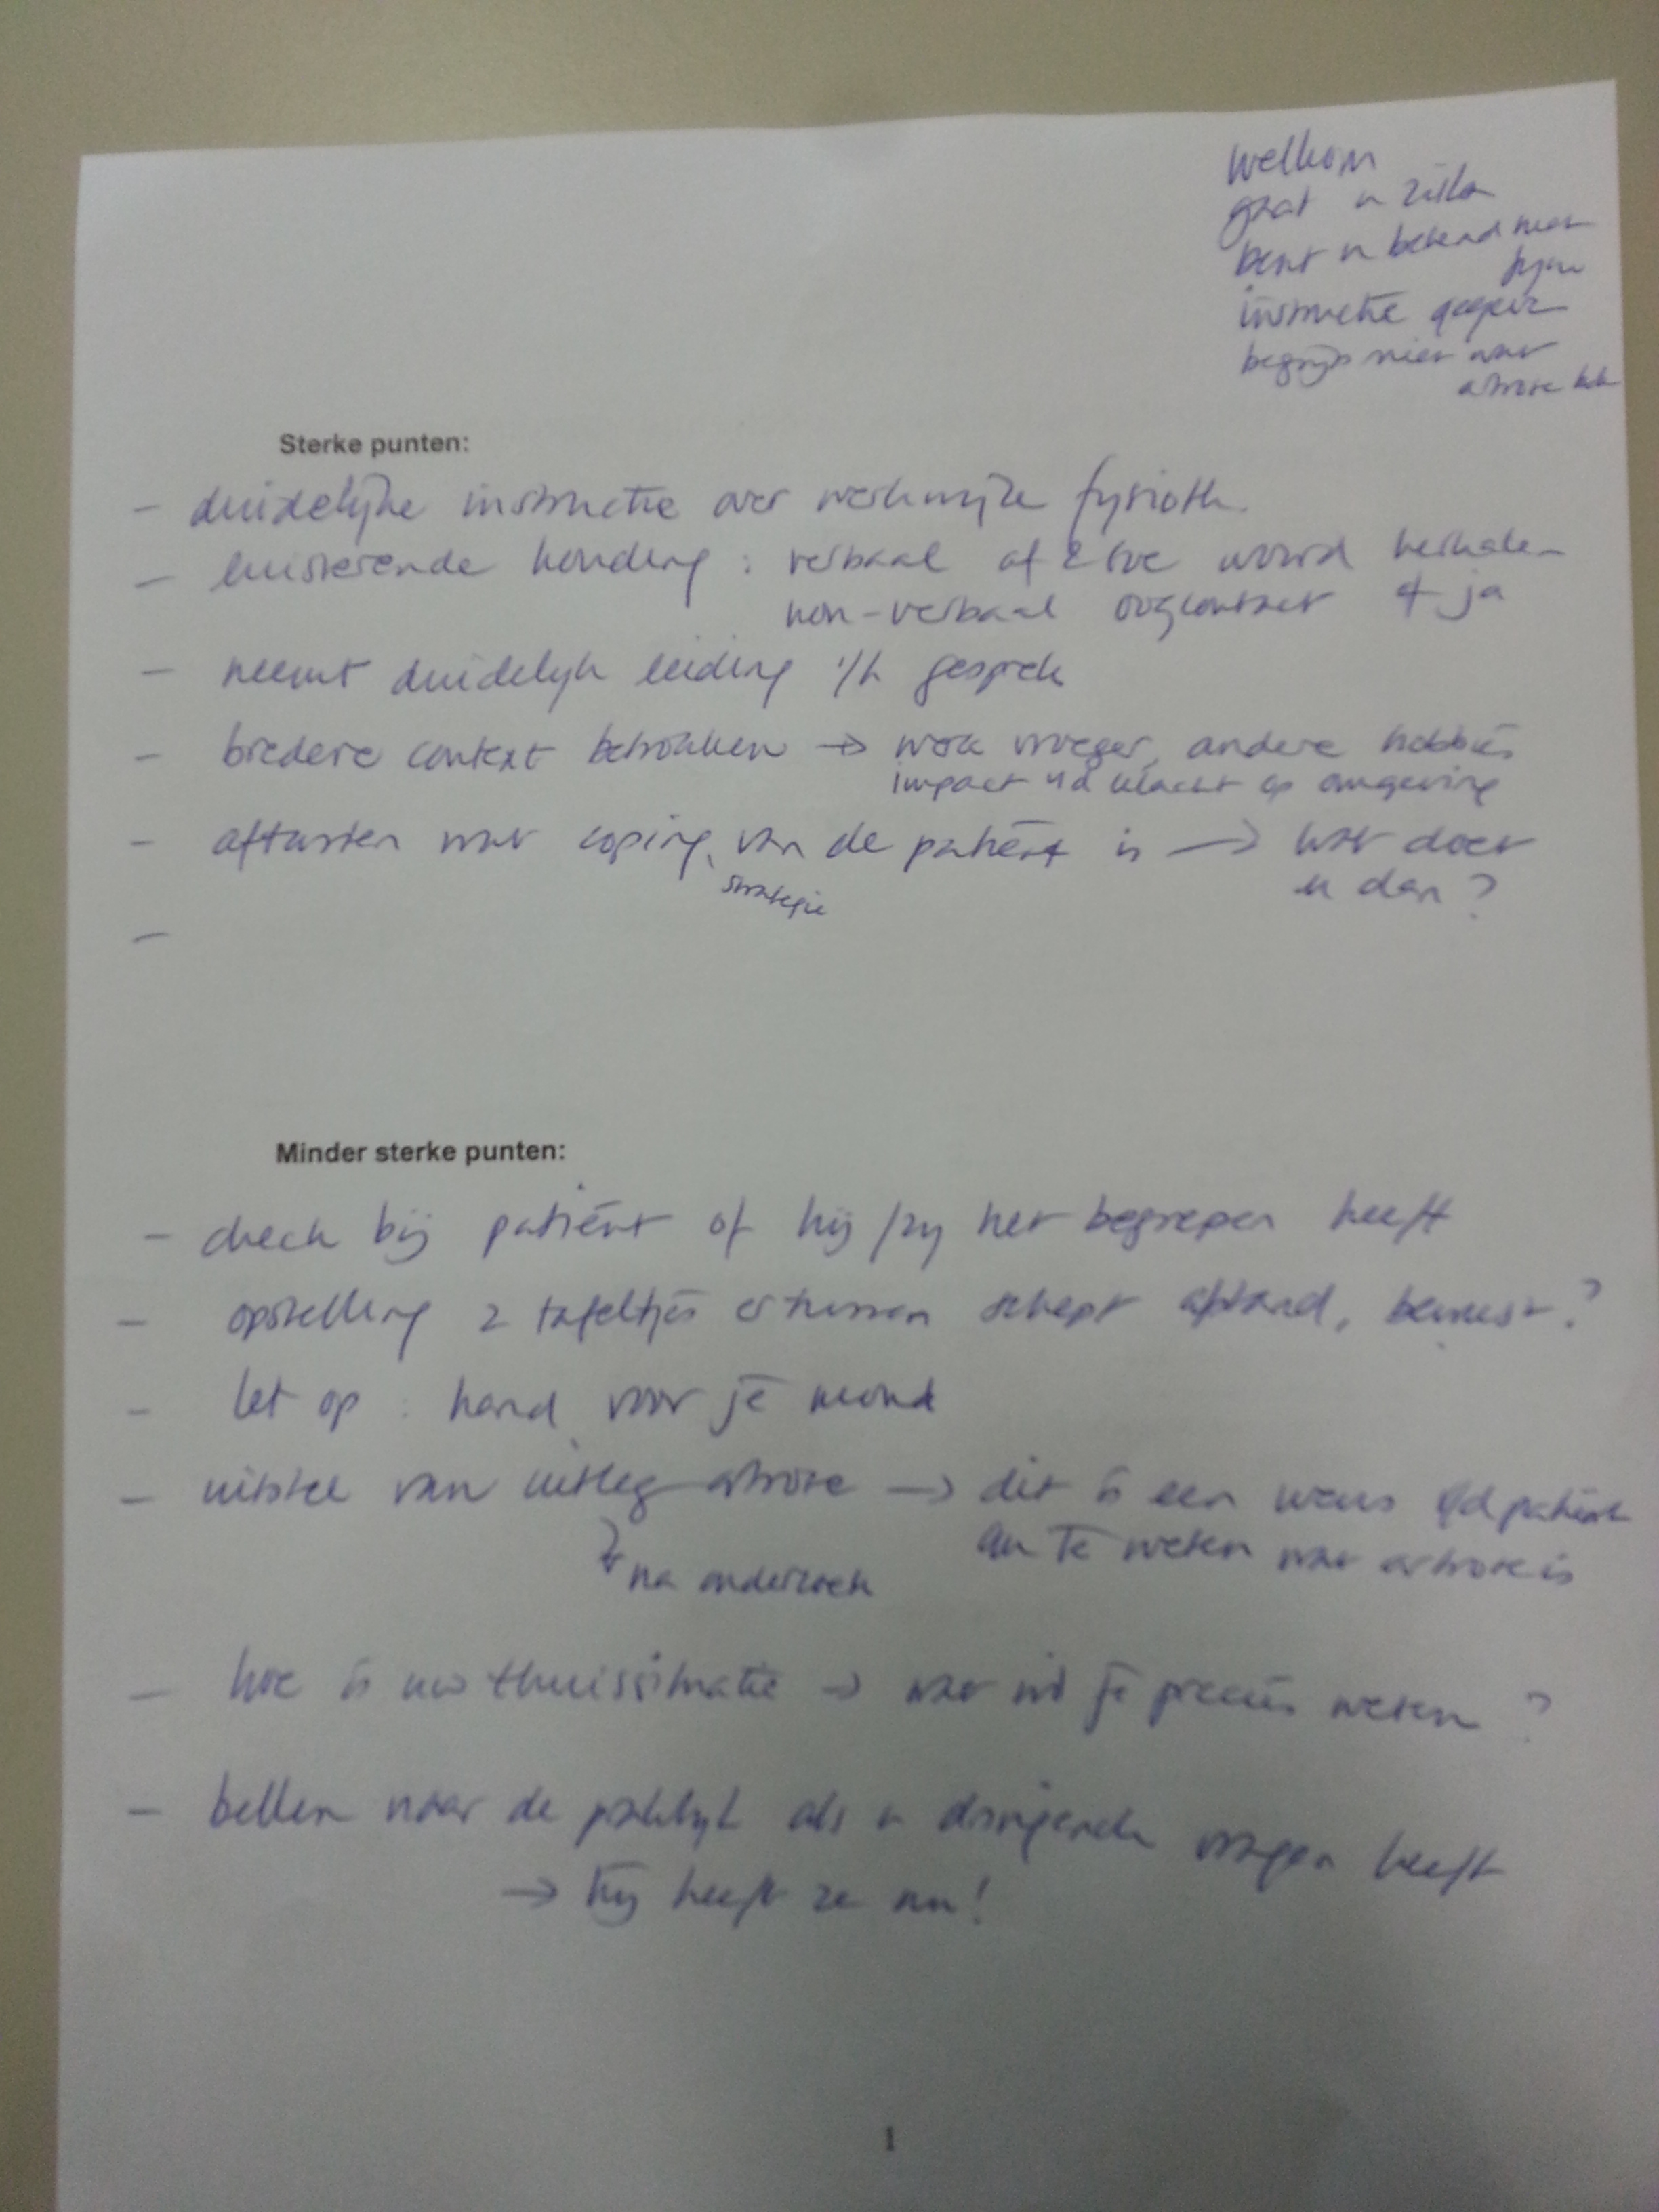 Welkom
gaat u zitten
bent u bekend met
fysio
instructie gegeven
begrijp niet wat
artrose
Sterke punten:
- duidelijke instructie over werkwijze fysioth.
- luisterende houding : verbaal af & toe woord herhalen
non-verbaal oogcontact & ja
- neemt duidelijk leiding i/h gesprek
- bredere context betrokken → werk vroeger, andere hobbies
impact v/d klacht op omgeving
- aftasten wat coping van de patiënt is → wat doet
strategie
u dan?
-
Minder sterke punten:
- check bij patiënt of hij/zij het begrepen heeft
- opstelling 2 tafeltjes ertussen schept afstand, bewust?
- let op : hand voor je mond
- uitstel van uitleg artrose → dit is een wens v/d patiënt
om te weten wat artrose is
na onderzoek
- hoe is uw thuissituatie → wat wil je precies weten?
- bellen naar de praktijk als u dringende vragen heeft
→ hij heeft ze nu!
1